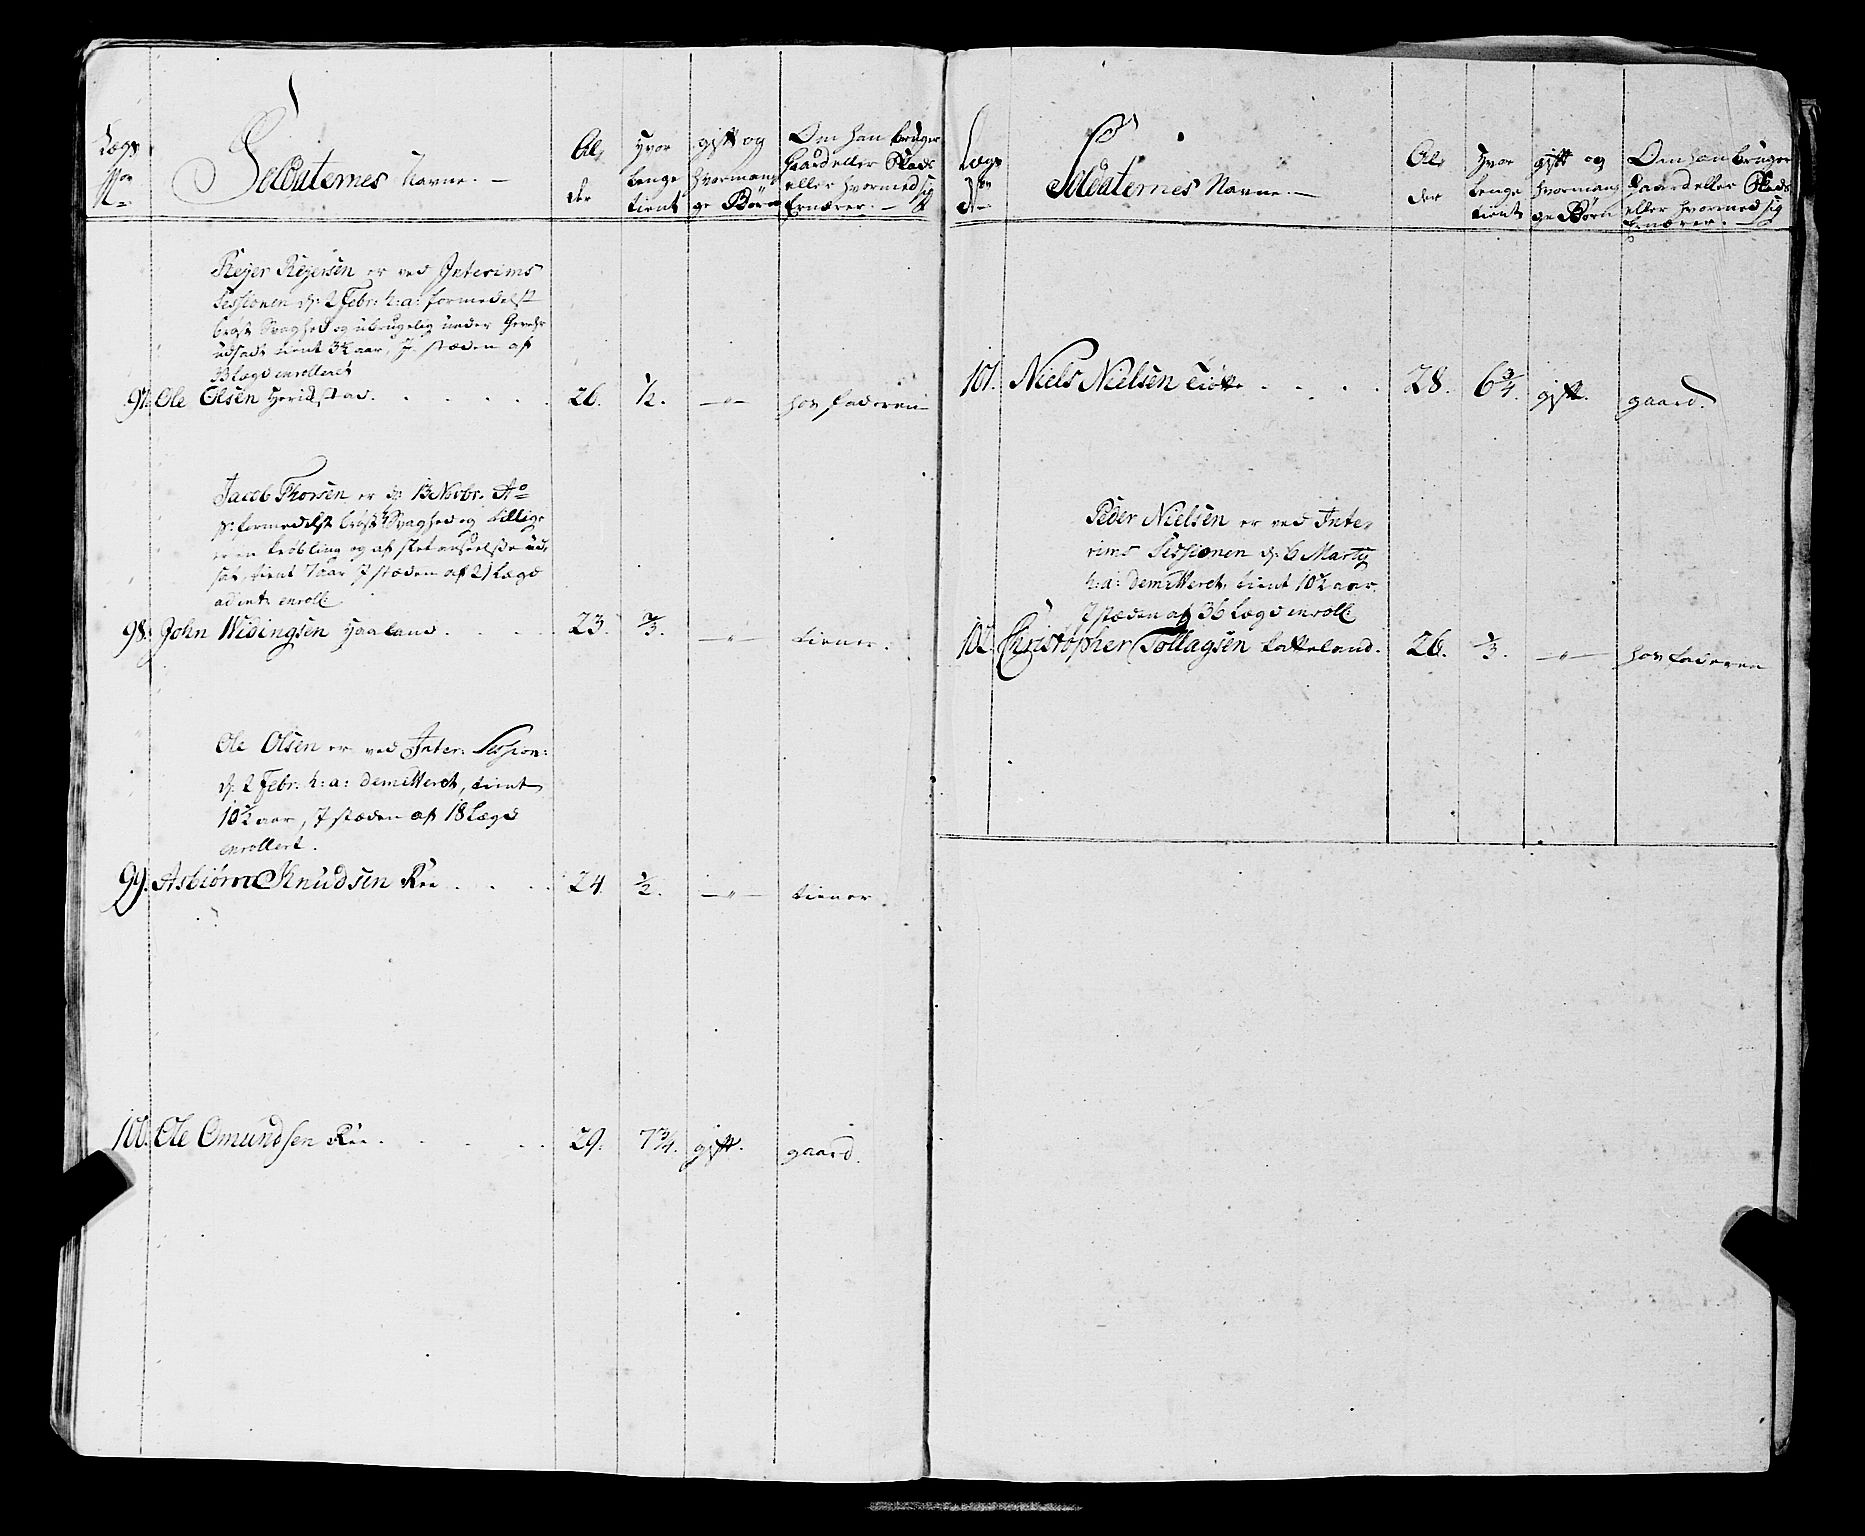 Lægs No
Soldaternes Navne. —
Al,
der
Hvor
lenge
tient
gift og
hvorman,
ge Börn
Om han bruger
Gaard eller Plads
eller hvormed sig
Ernærer. —
Rejer Rejersen er ved Interims
Sessionen d: 2 Febr: h: a: formedelst
bröst Svaghed og ubrugelig under Gevehr
udsadt tient 3½ aar, J stæden af
33 Lægd enrolleret
97. Ole Olsen Herigstad. 26. ½. —„— hos Faderen
Jacob Thorsen er d: 13 Novbr. Ao
p: formedelst bröst Svaghed og tillige
er en Kröbling og af slet anseelse ud,
sat, tient 7 aar J stæden af 21 Lægd
ad int: enroll:
98. John Widingsen Haaland. 23. ⅔. —„— tiener.
Ole Olsen er ved Inter: Session:
d: 2 Febr: h: a: demitteret, tient
10½ aar, J stæden af 18 Lægd
enrollert.
99. Asbiörn Knudsen Ree 24. ½. —„— tiener
100. Ole Omundsen Ree. 29. 7¾. gift. gaard.
Lægs No
Soldaternes Navne. —
Al,
der
Hvor
lenge
tient
gift og
hvorman,
ge Börn
Om han bruger
Gaard eller Plads
eller hvormed sig
Ernærer. —
101. Niels Nielsen Tiötte. 28. 6¾. gift. gaard.
Peder Nielsen er ved Inte,
rims Sessionen d: 6 Marty
h: a: demitteret. tient 10½ aar.
J stæden af 36 Lægd enroll:
102. Christopher Tollagsen Latteland. 26. ⅓. —„— hos Faderen